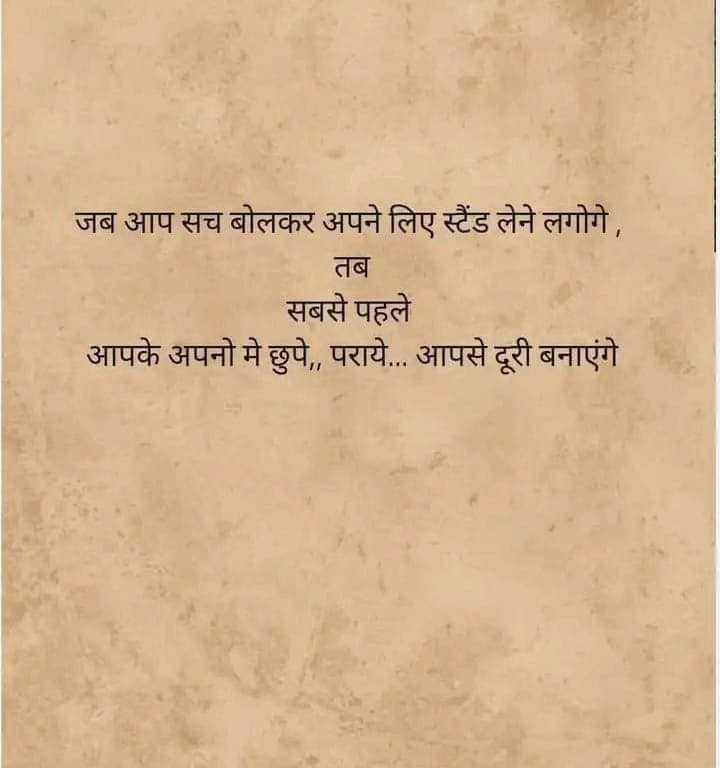 जब आप सच बोलकर अपने लिए स्टैंड लेने लगोगे ,
तब
सबसे पहले
आपके अपनो मे छुपे,, पराये... आपसे दूरी बनाएंगे